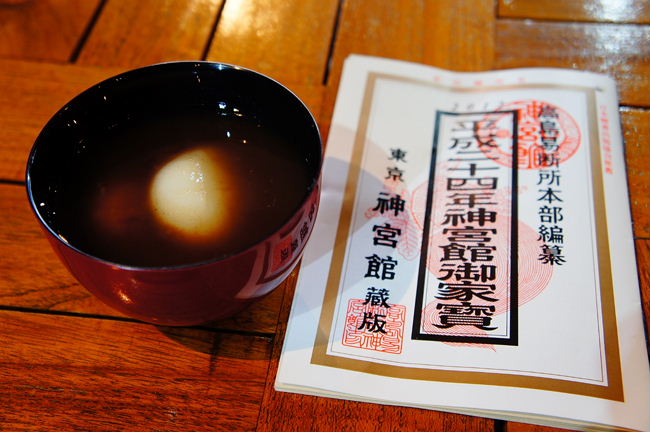 2012
高島易断所本部編纂
平成二十四年神宮館御家寶
東京 神宮館藏版